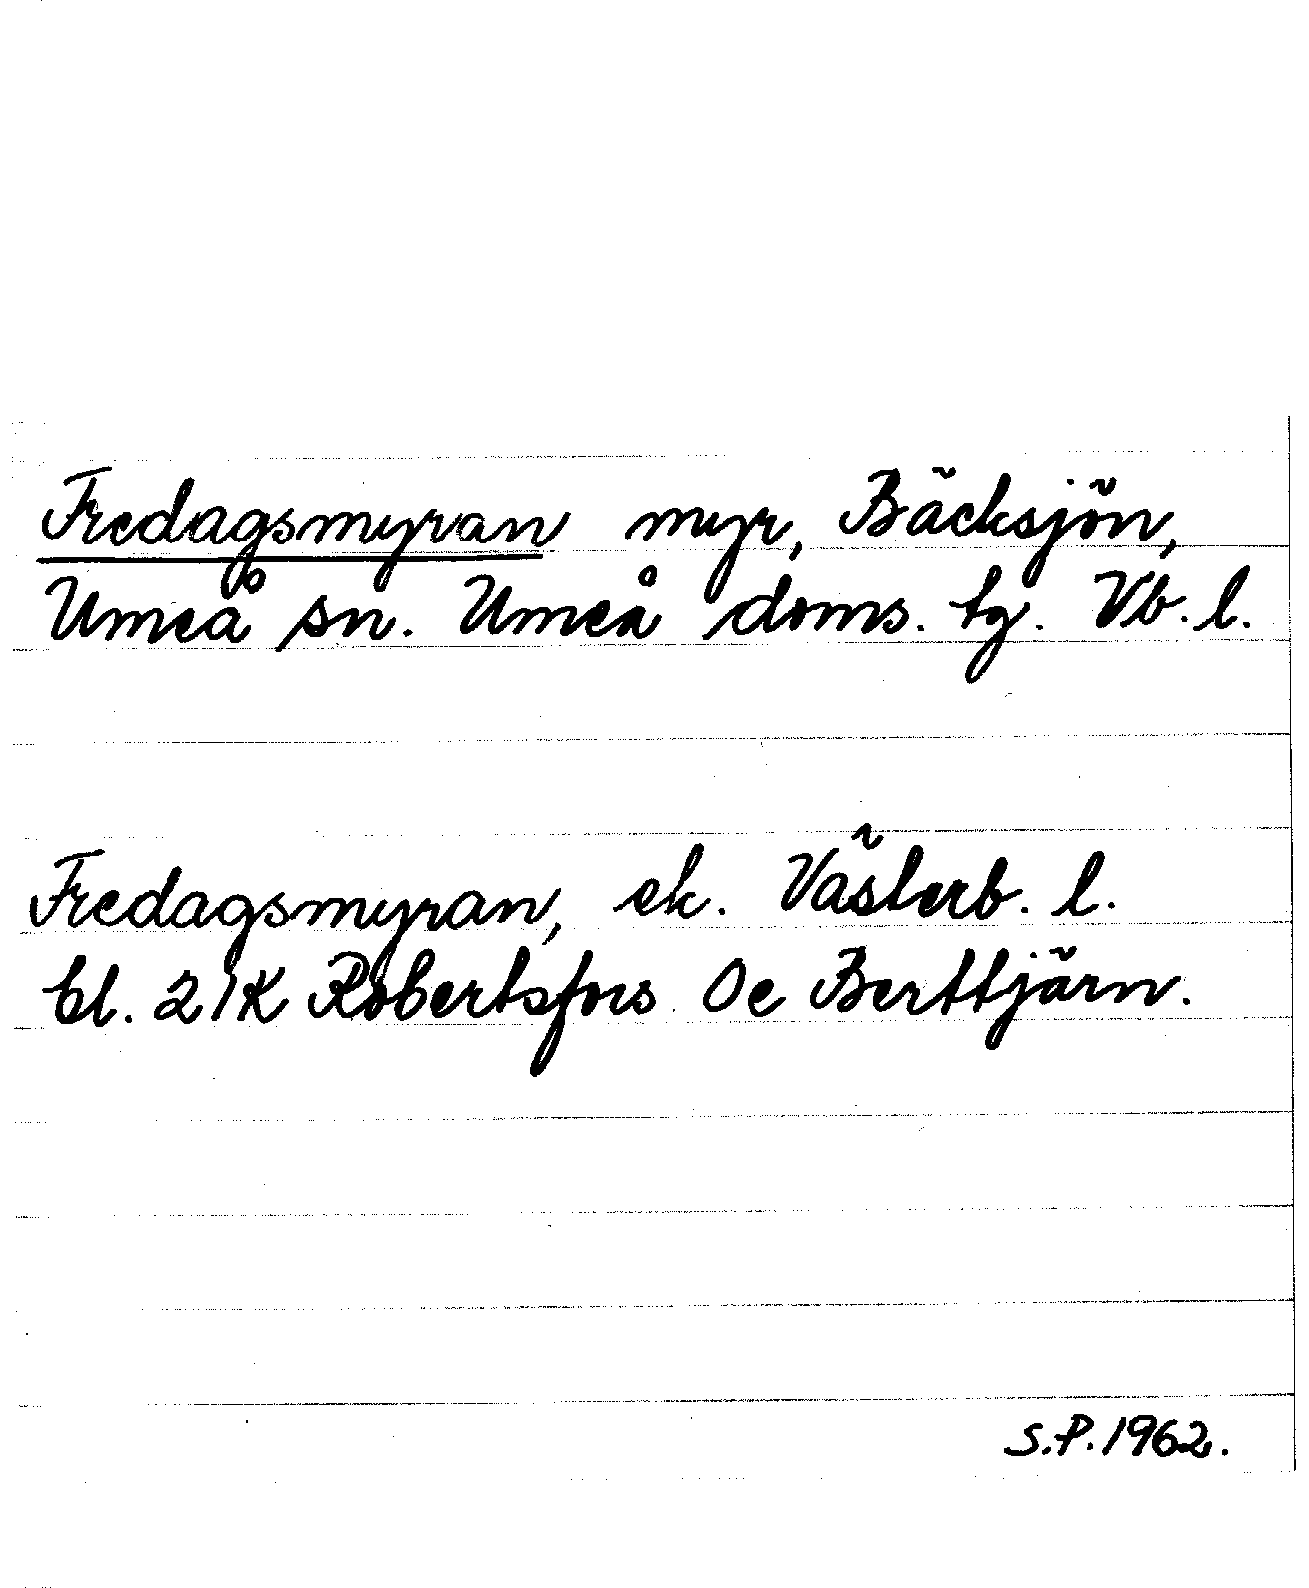 Fredagsmyran myr, Bäcksjön,
Umeå sn. Umeå doms. tg. Vb. l.
Fredagsmyran, ek. Västerb. l.
bl. 21K Robertsfors Oe Berttjärn.
S.P. 1962.